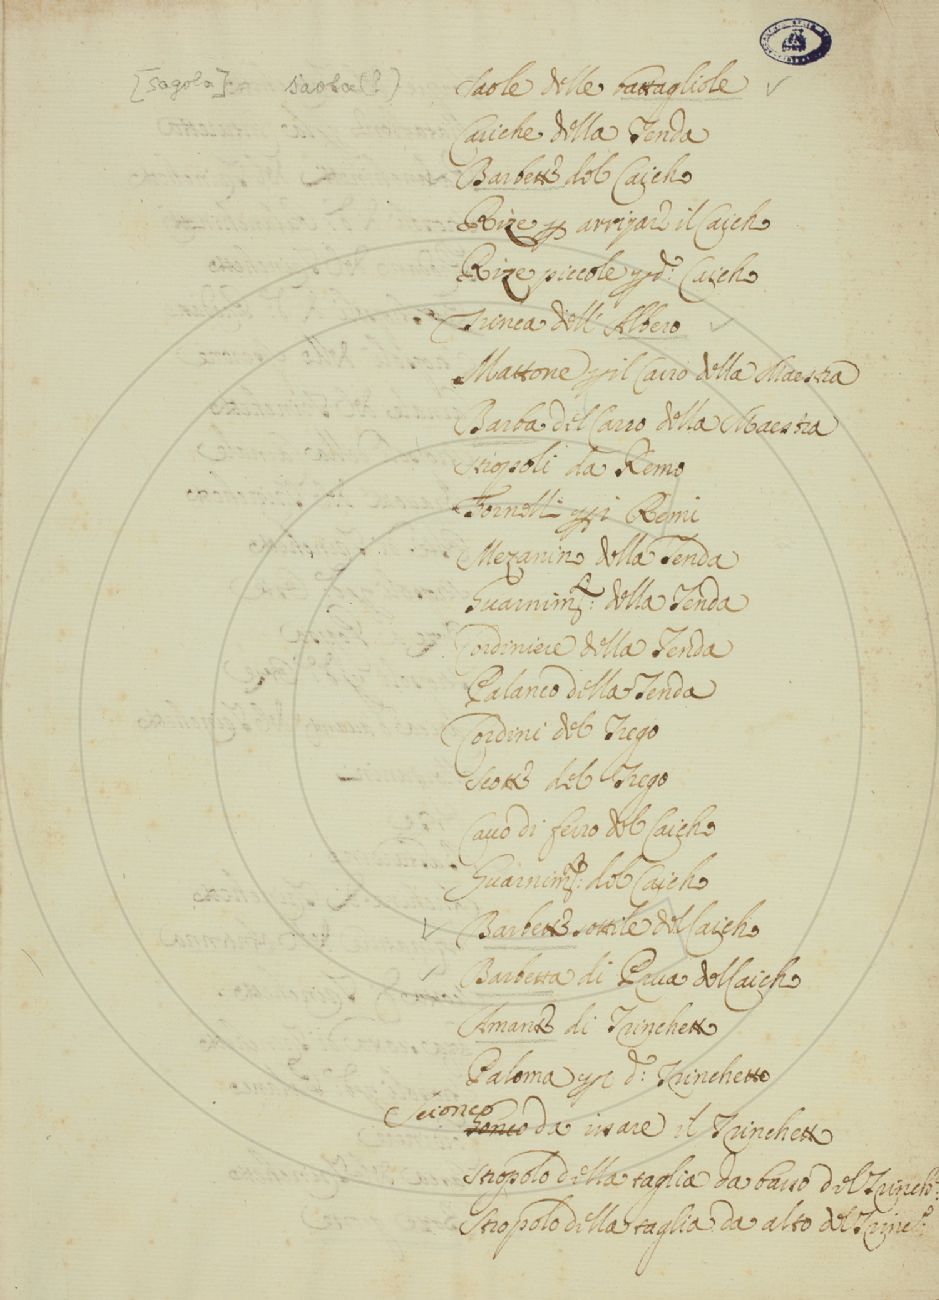 [sagola] saola(?)
Saole delle battagliole
Cariche della Tenda
Barbette del Caich
Rize per arrizare il Caich
Rize piccole per d: Caich
Trinca dell' Albero
Mattone per il Carro della Maestra
Barba del Carro della Maestra
Stropoli da Remo
Fornelli per i Remi
Mezanin della Tenda
Guarnimti: della Tenda
Cordiniere della Tenda
Palanco della Tenda
Cordini del Trego
Scotte del Trego
Cavo di ferro del Caich
Guarnimti: del Caich
Barbette sottile del Caich
Barbetta di Prua del Caich
Amante di Trinchetto
Paloma per d: Trinchetto
Scionco
Fonco da issare il Trinchetto
Stropolo della taglia da basso del Trinch:
Stropolo della taglia da alto del Trinch: